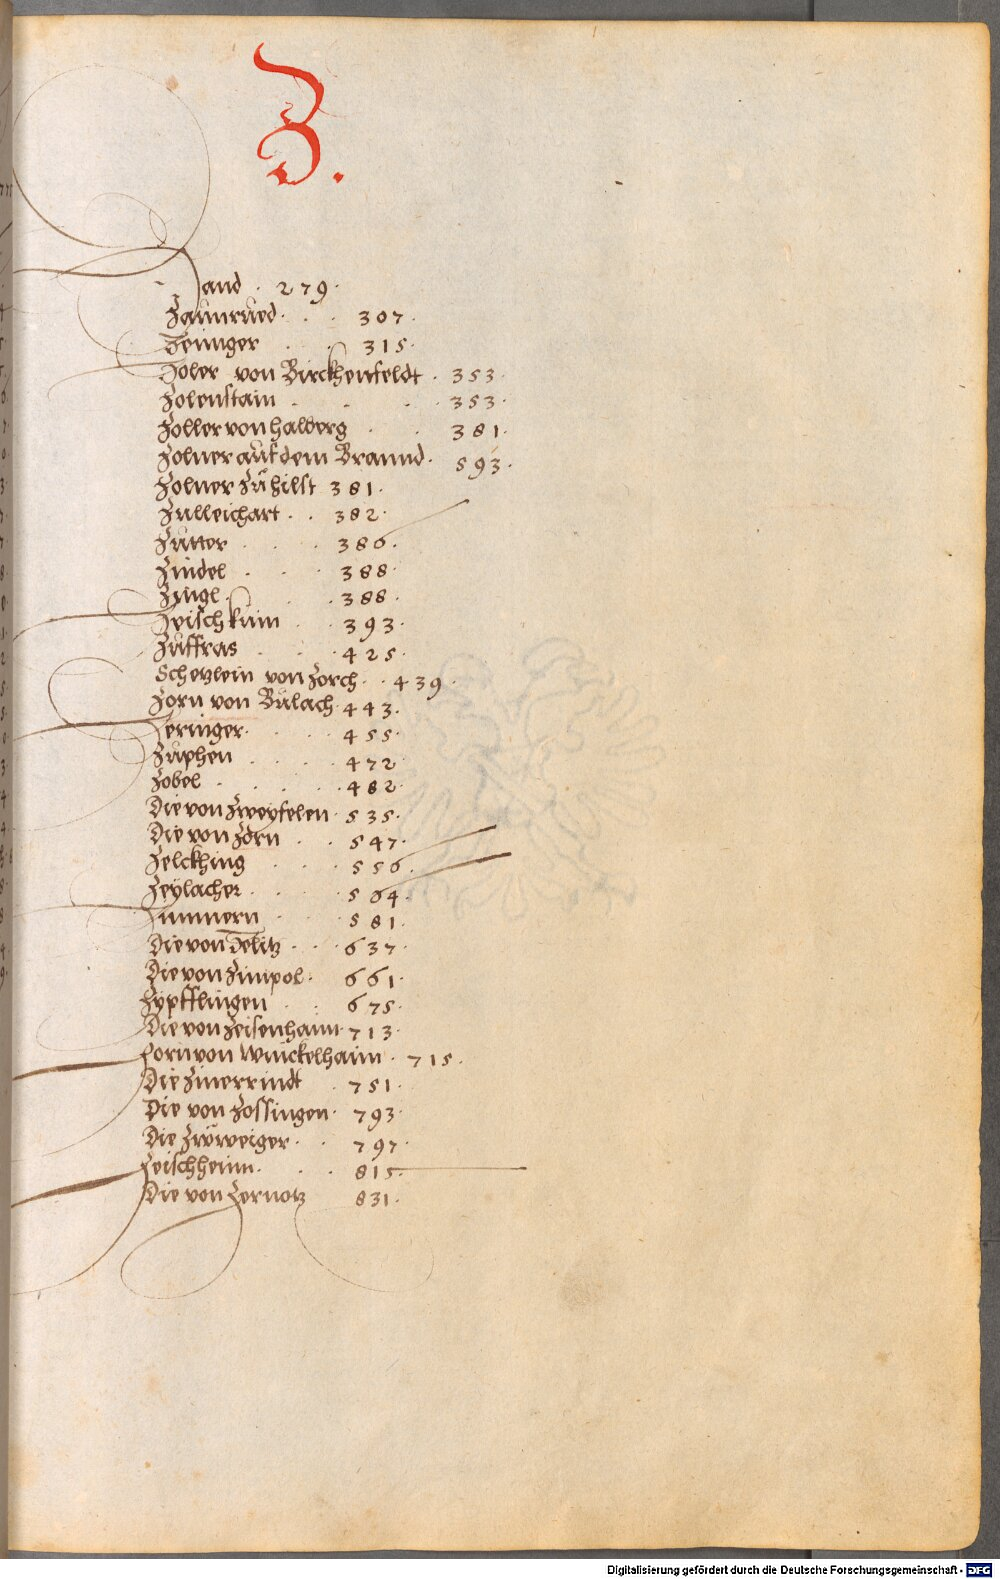 Z.
Zand . 279 .
Zaunrüed . . . 307 .
Zeninger . . 315 .
Zoler von Birckhenfeldt . 353 .
Zolenstain . . . . 353 .
Zoller von Halberg . . 381 .
Zolner auf dem Brannd . 593 .
Zolner Zü 381 .
Zulleichart . . 382 .
Zutter . . . 386 .
Zindel . . . 388 .
Zingl . . . 388 .
Zvischkum . . 393 .
Zuffras . . . 425 .
Scheyzlein von Zorch . . 439 .
Zorn von Bülach . 443 .
Zeringer . . . 455 .
Zuphen . . . . 472 .
Zobel . . . . 482 .
Die von Zweyfelen . 535 .
Die von Zorn . . 547 .
Zelckhing . . . 556 .
Zeylacher . . . 564 .
Zimmern . . . 581 .
Die von Zelitz . . . 637 .
Die von Zimpol . 661 .
Zypfflingen . . 675 .
Die von Zeisenhaim . 713 .
Zorn von Winckelhaim . 715 .
Die Zinerrindt . 751 .
Die von Zossingen . 793 .
Die Zwweiger . . 797 .
Zeischheim . . . 815 .
Die von Zernotz 831 .
Digitalisierung gefördert durch die Deutsche Forschungsgemeinschaft - DFG